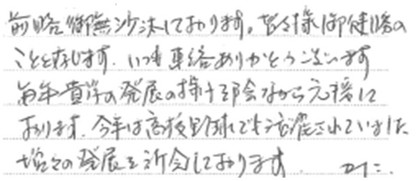 前略 御無沙汰しております。皆々様御健勝の
ことと存じます。いつも連絡ありがとうございます
毎年貴学の発展の様子を陰ながら元獐に
おります。今年は高校野球でも活躍されていました
増々の発展を祈念しております